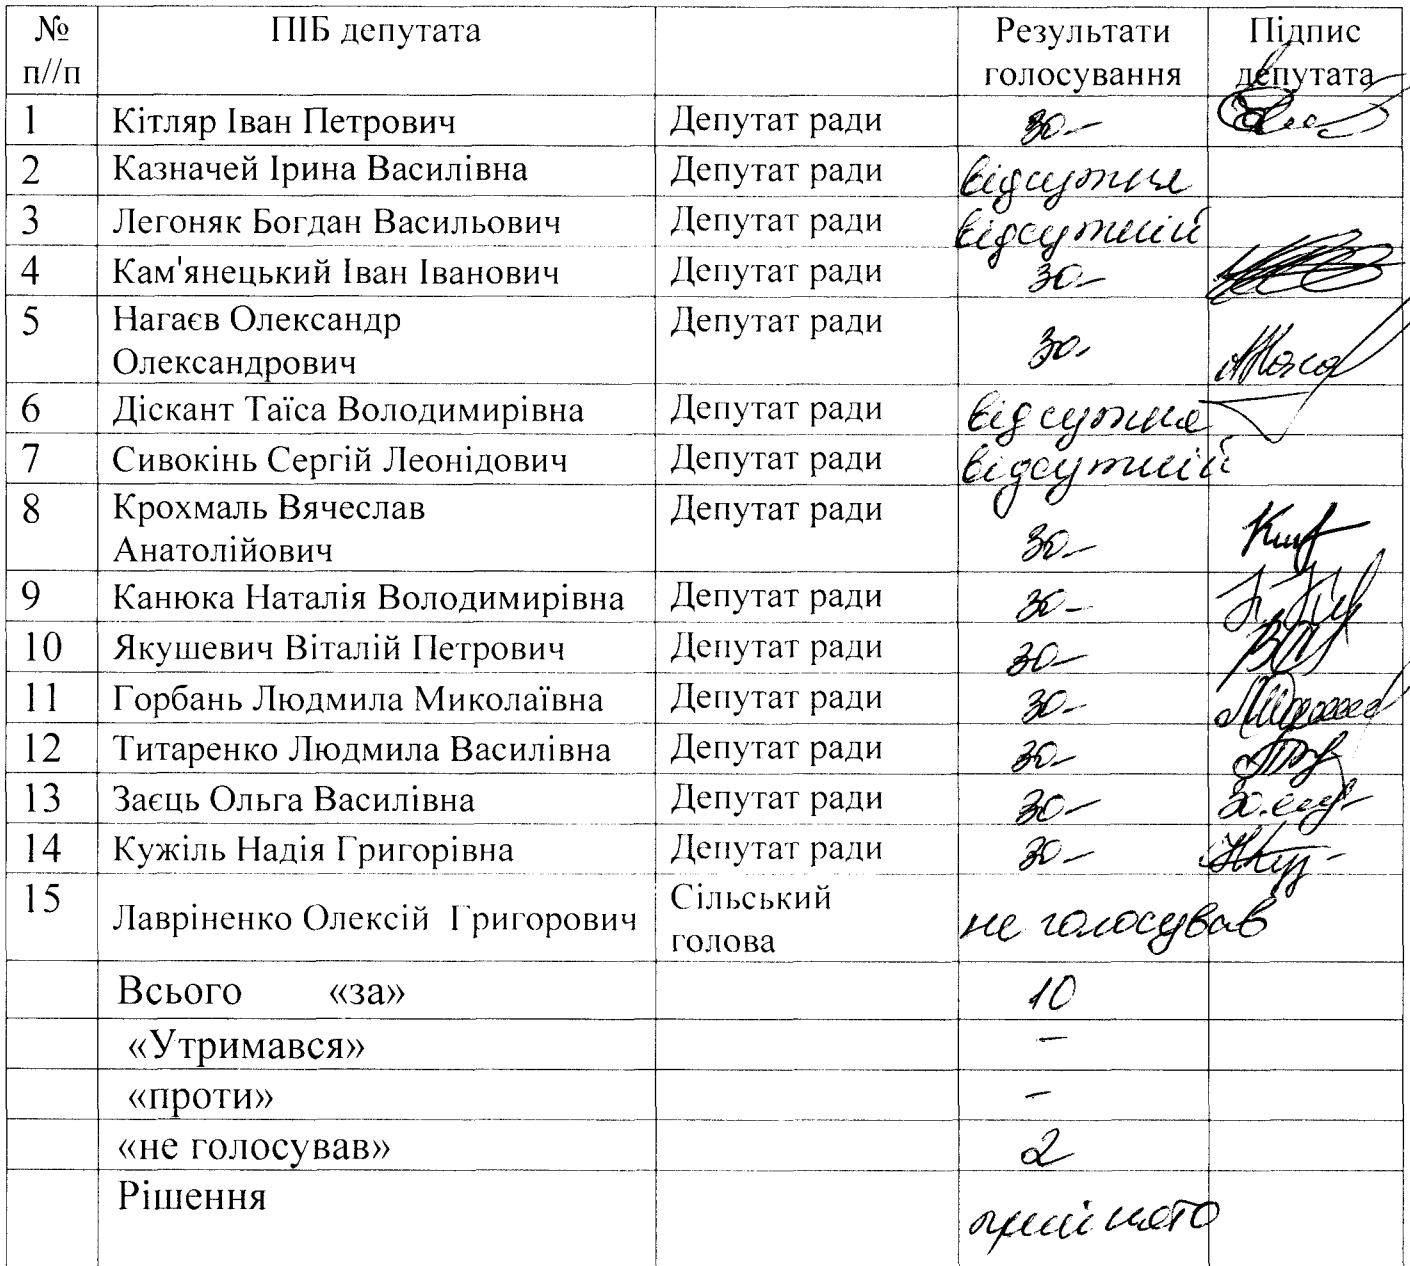 № ПІБ депутата Результати Підпис
п//п голосування депутата
1 Кітляр Іван Петрович Депутат ради за-
2 Казначей Ірина Василівна Депутат ради відсутня
3 Легоняк Богдан Васильович Депутат ради відсутній
4 Кам'янецький Іван Іванович Депутат ради за-
5 Нагаєв Олександр Депутат ради за-
Олександрович
6 Діскант Таїса Володимирівна Депутат ради відсутня
7 Сивокінь Сергій Леонідович Депутат ради відсутній
8 Крохмаль Вячеслав Депутат ради за-
Анатолійович
9 Канюка Наталія Володимирівна Депутат ради за-
10 Якушевич Віталій Петрович Депутат ради за-
11 Горбань Людмила Миколаївна Депутат ради за-
12 Титаренко Людмила Василівна Депутат ради за-
13 Заєць Ольга Василівна Депутат ради за-
14 Кужіль Надія Григорівна Депутат ради за-
15 Лавріненко Олексій Григорович Сільський не голосував
голова
Всього «за» 10
«Утримався» -
«проти» -
«не голосував» 2
Рішення прийнято